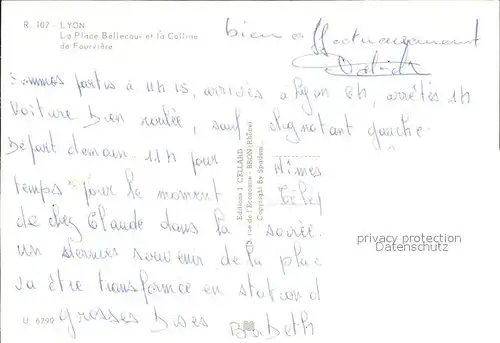 R. 107 - LYON
La Place Bellecour et la Colline
de Fourvière
bien affectueusement
Sommes partis à 11h15, arrivés à Lyon 6h, arrêtés 1h
Voiture bien roulée, sauf clignotant gauche.
Départ demain. 11h pour Nîmes
temps pour le moment
de chez Claude dans la soirée.
un dernier souvenir de la place
va être transformée en station d
grosses bises Babeth
U 6799
Editions J. CELLARD
rue de l'Economie - BRON (Rhône)
Copyright By Spadem
privacy protection
Datenschutz